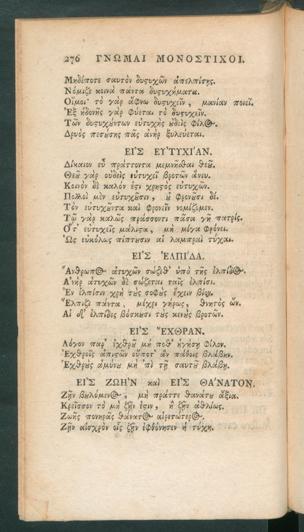 276 ΓΝΩΜΑΙ ΜΟΝΟΣΤΙΧΟΙ.
Μηδέποτε σαυτὸν δυςυχῶν ἀπελπίσῃς.
Νόμιζε κοινὰ πάντα δυςυχήματα.
Οἴμοι· τὸ γὰρ ἄφνω δυςυχεῖν, μανίαν ποιεῖ.
Ἐξ ἡδονῆς γὰρ φύεται τὸ δυςυχεῖν.
Τῶν δυςυχόντων εὐτυχὴς ἐδεὶς φίλος.
Δρυὸς πεσέσης πᾶς ἀνὴρ ξυλεύεται.
ΕΙΣ ΕΥΤΥΧΙΑΝ.
Δίκαιον εὖ πράττοντα μεμνῆσθαι θεῶ.
Θεῦ γὰρ οὐδεὶς εὐτυχεῖ βροτῶν ἄνευ.
Κοινὸν δὲ καλόν ἐςι χρηςὸς εὐτυχῶν.
Πολλοὶ μὲν εὐτυχῶσιν, ὐ φρονῶσι δέ.
Τὸν εὐτυχῶντα καὶ φρονεῖν νομίζομεν.
Τῷ γὰρ καλῶς πράσσοντι πᾶσα γῆ πατρίς.
Ὅτ' εὐτυχεῖς μάλιςα, μὴ μέγα φρόνει.
Ὡς εὐκόλως πίπτυσιν αἱ λαμπραὶ τύχαι.
ΕΙΣ ΕΛΠΙΔΑ.
Ἄνθρωπος ἀτυχῶν σώζεθ' ὑπὸ τῆς ἐλπίδος.
Ἀνὴρ ἀτυχῶν δὲ σώζεται ταῖς ἐλπίσι.
Ἐν ἐλπίσιν χρὴ τὺς σοφὺς ἔχειν βίον.
Ἔλπιζε πάντα, μέχρι γήρως, θνητὸς ὤν.
Αἱ δ' ἐλπίδες βόσκυσι τὺς κενὺς βροτῶν.
ΕΙΣ ΕΧΘΡΑΝ.
Λόγον παρ' ἐχθρῦ μή ποθ' ἡγήσῃ φίλον.
Ἐχθροῖς ἀπιςῶν οὔποτ' ἂν πάθοις βλάβην.
Ἐχθρὺς ἀμύνυ μὴ 'πὶ τῇ σαυτῦ βλάβῃ.
ΕΙΣ ΖΩΗΝ καὶ ΕΙΣ ΘΑΝΑΤΟΝ.
Ζῆν βυλόμενος, μὴ πράττε θανάτυ ἄξια.
Κρεῖσσον τὸ μὴ ζῆν ἐςιν, ἢ ζῆν ἀθλίως.
Ζωῆς πονηρᾶς θάνατος αἱρετώτερος.
Ζῆν αἰσχρὸν οἷς ζῆν ἐφθόνησεν ἡ τύχη.